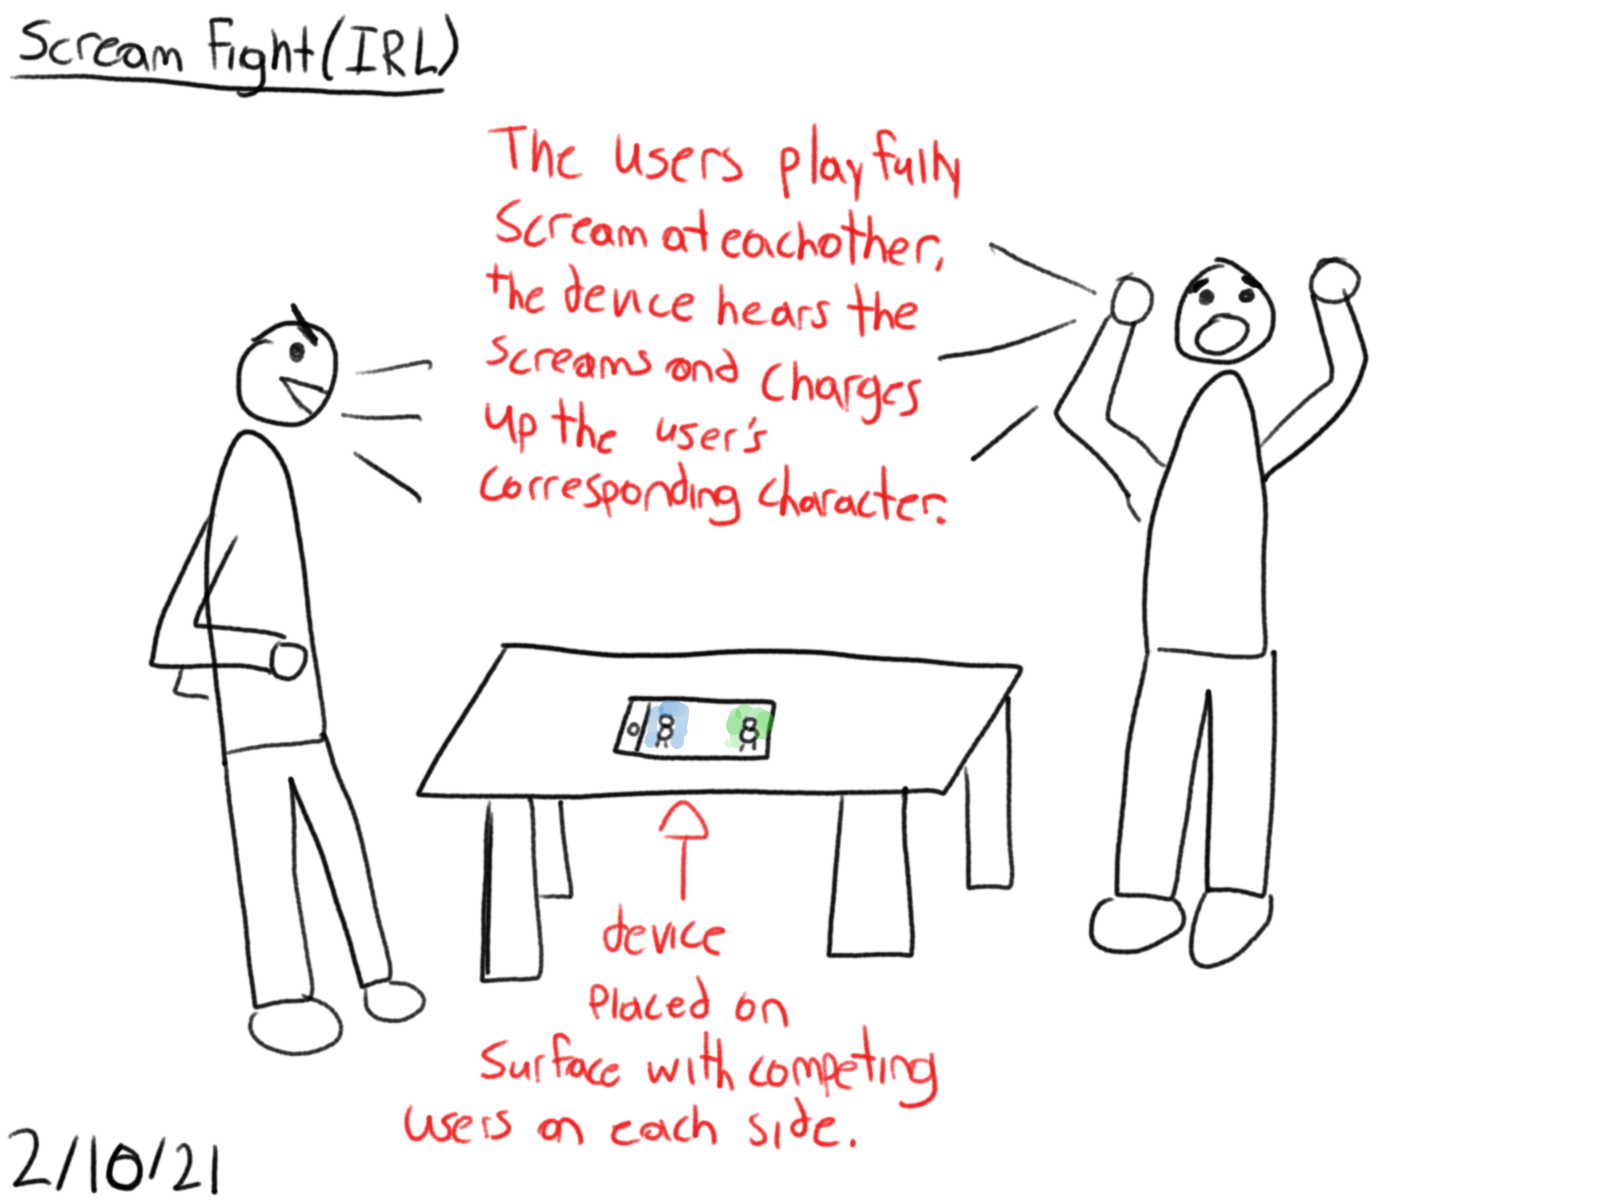 Scream Fight (IRL)
The users playfully
scream at eachother,
the device hears the
screams and charges
up the user's
corresponding character.
device
placed on
surface with competing
users on each side.
2/10/21